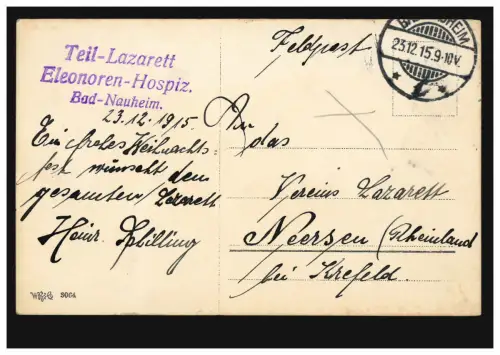 Teil-Lazarett
Eleonoren-Hospiz.
Bad-Nauheim.
23.12.1915.
Ein frohes Weihnachts-
fest wünscht dem
gesamten Lazarett
Heinr. Schilling
Feldpost
NAUHEIM
23.12.15.9-10V.
An
das
Vereins Lazarett
Neersen (Rheinland
bei Krefeld.
9064